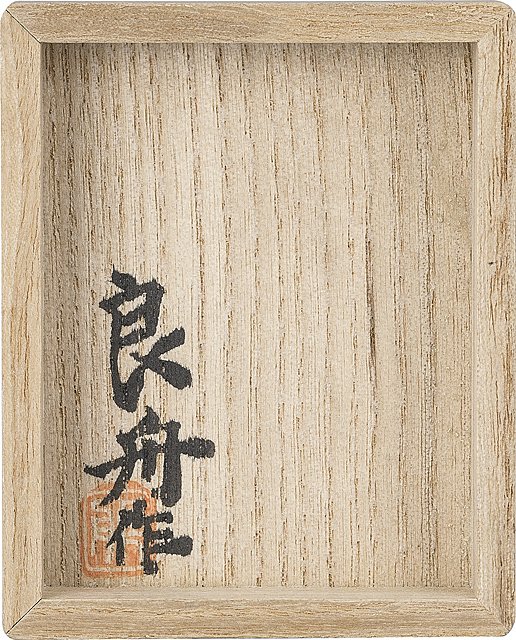 良舟作